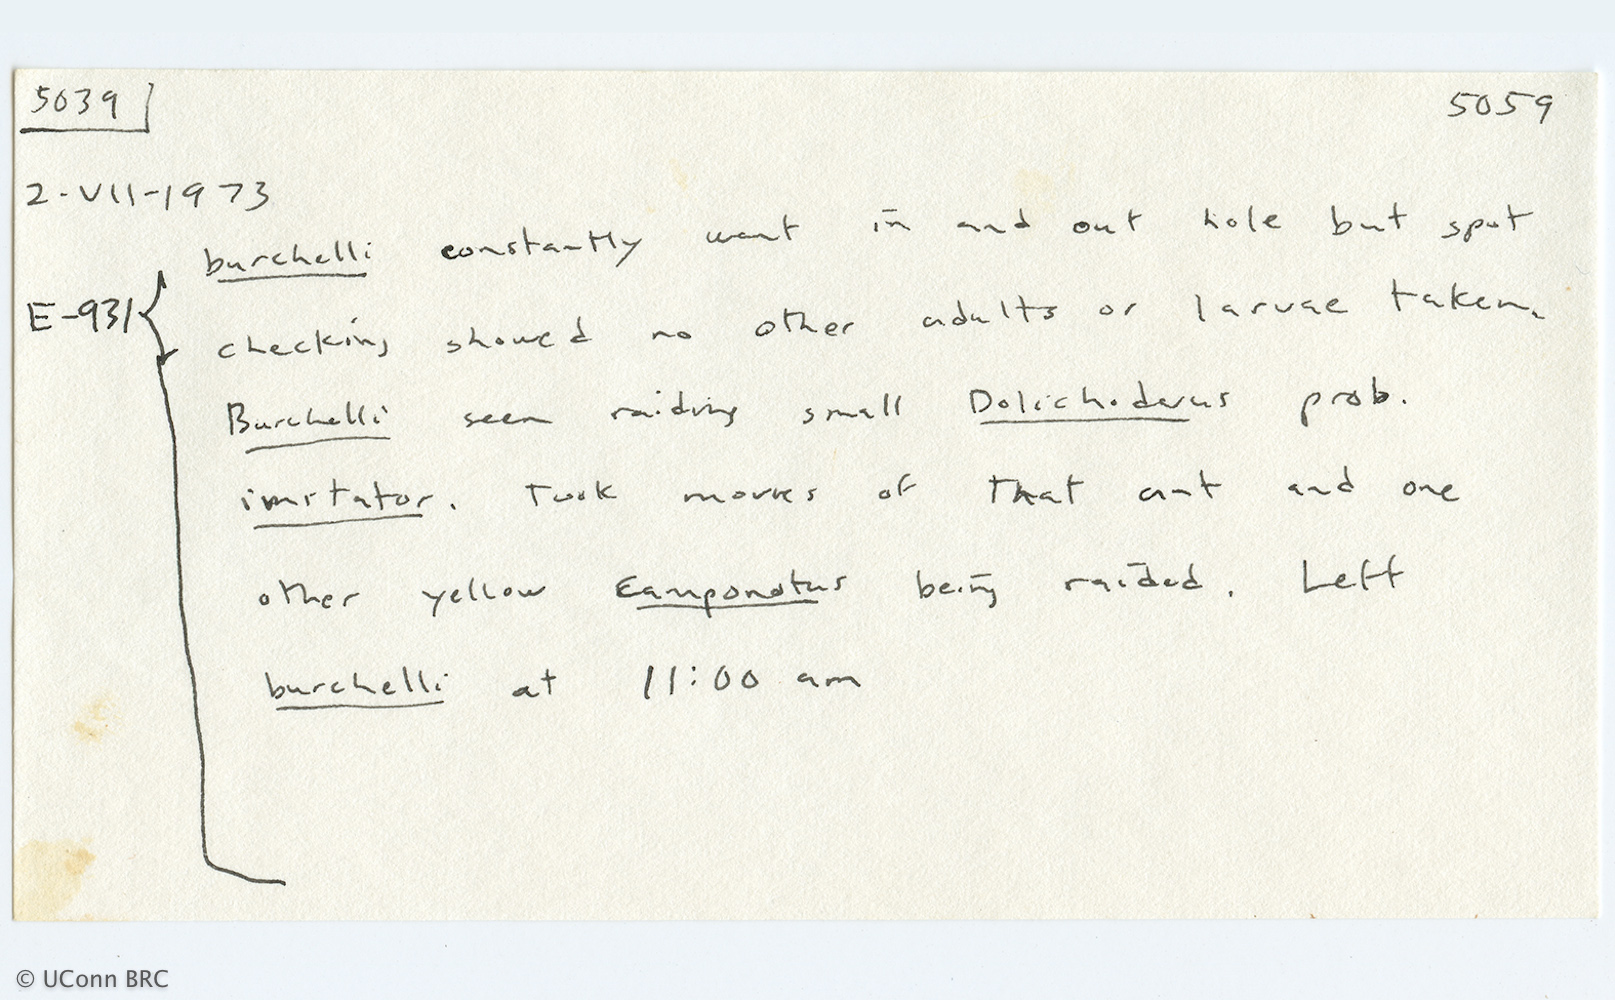 5039 5059
2-VII-1973
burchelli constantly went in and out hole but spot
E-931
checking showed no other adults or larvae taken.
Burchelli seen raiding small Dolichoderus prob.
imitator. Took movies of that ant and one
other yellow Camponotus being raided. Left
burchelli at 11:00 am
© UConn BRC